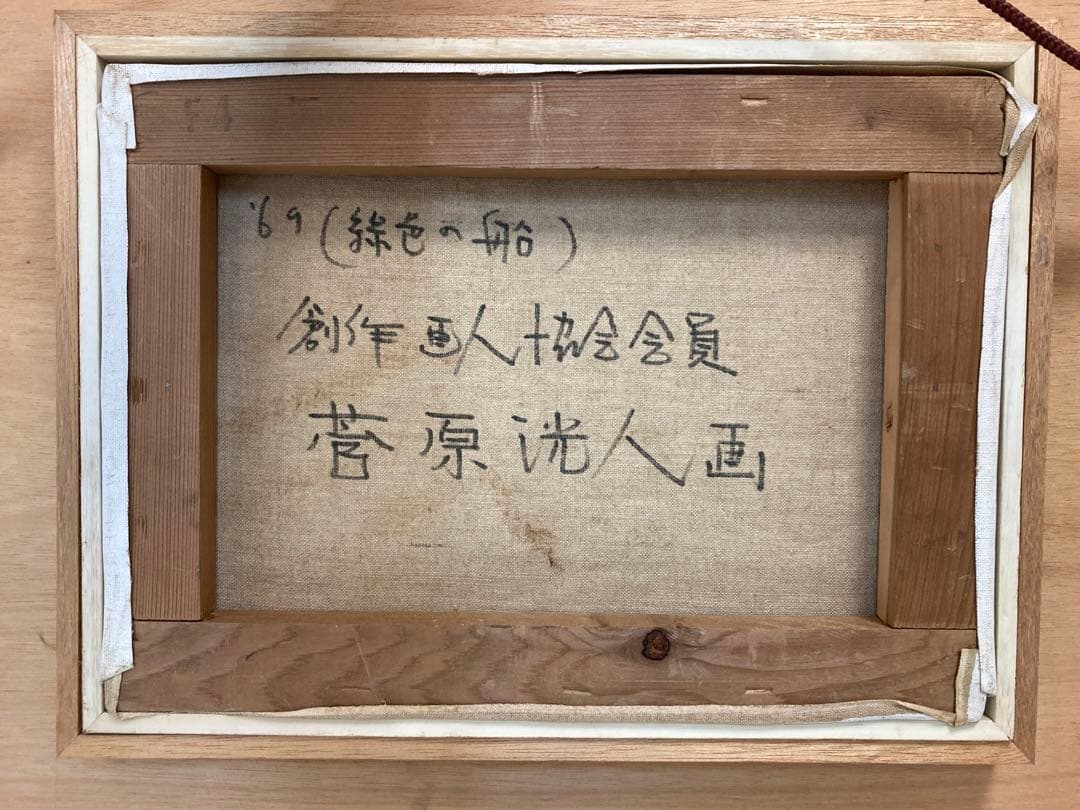 '69 (緑色の船)
創作画人協会会員
菅原洸人画